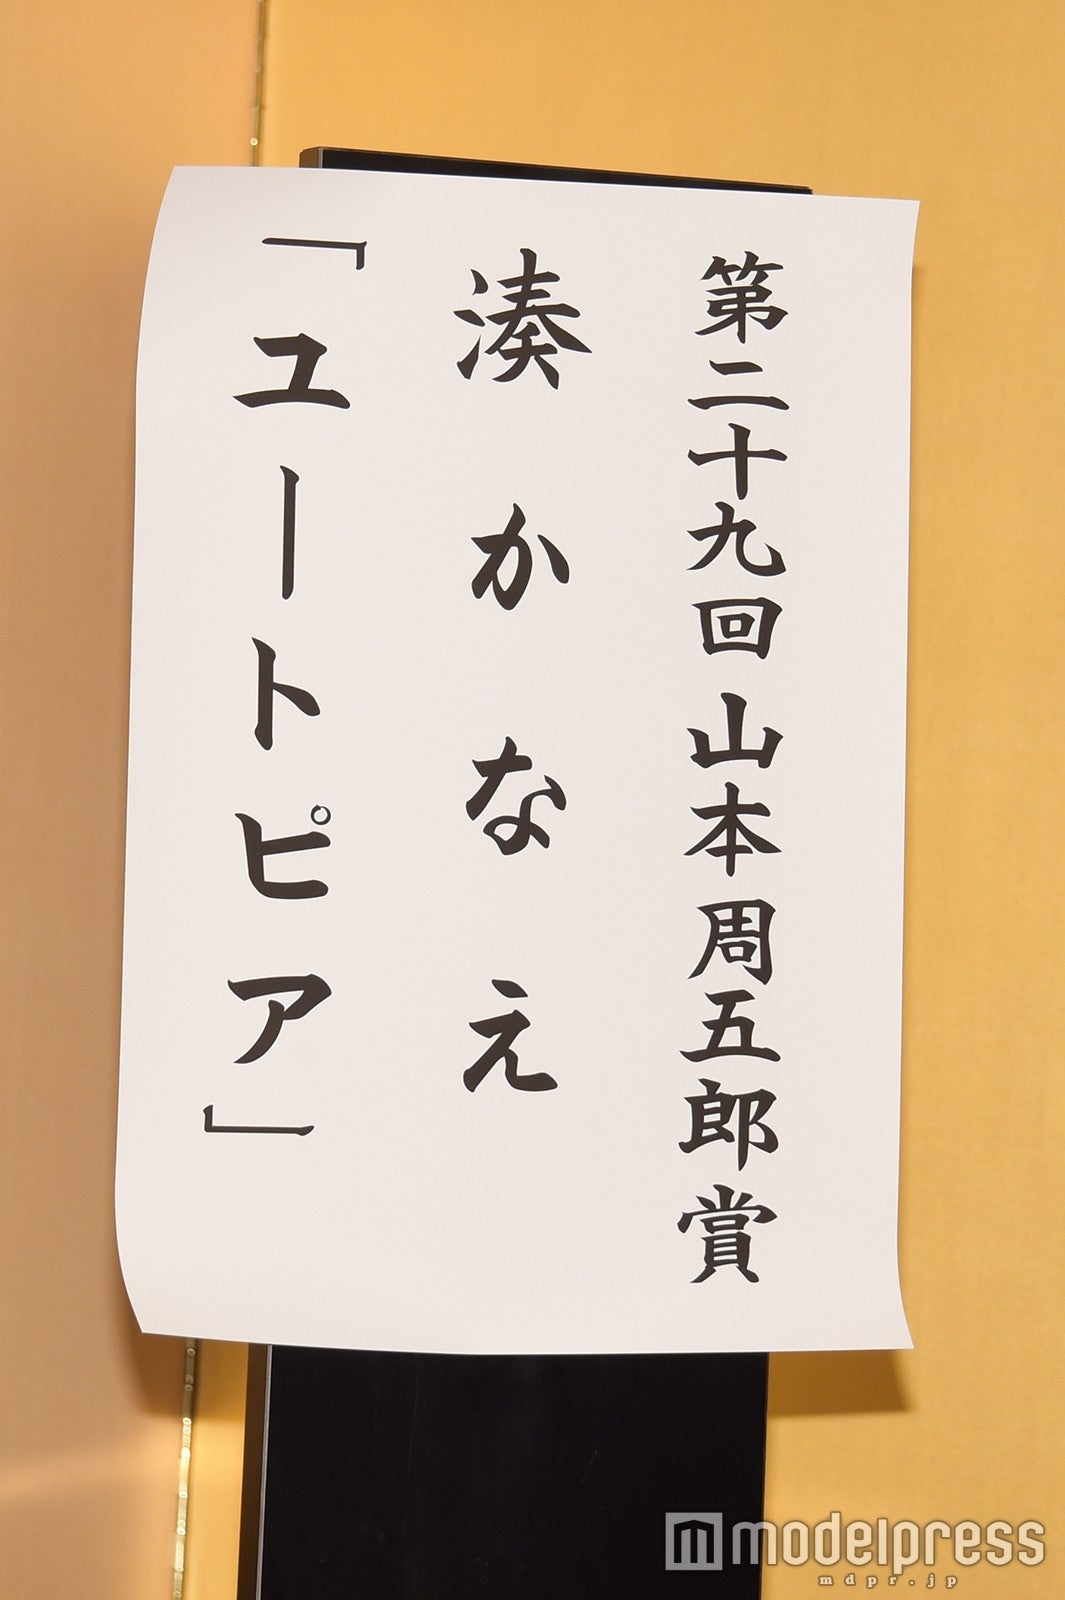 第二十九回山本周五郎賞
湊かなえ
「ユートピア」
modelpress
mdpr.jp